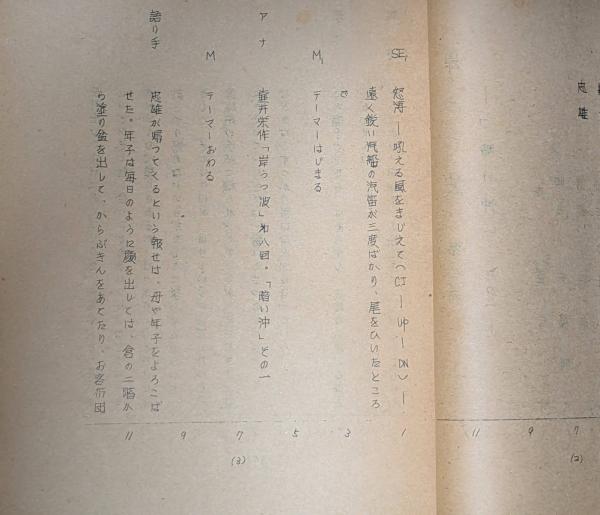 忠雄
SE₁ 怒涛―吠える風をまじえて(CI―UP―DN)―
遠く鋭い汽船の汽笛が三度ばかり、尾をひいたところ
で
M₁ テーマーはじまる
アナ 壷井栄作「岸うつ波」第八回・「暗い沖」その一
M テーマーおわる
語り手 忠雄が帰つてくるという報せは、母や年子をよろこば
せた。年子は毎日のように顔を出しては、倉の二階か
ら塗り盆を出して、からぶきんをあてたり、お客布団
1
3
5
7
9
11
(3)
7
9
11
(2)